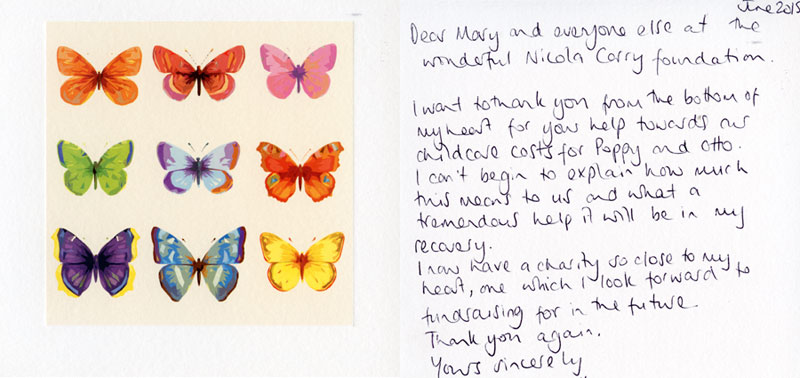 June 2015
Dear Mary and everyone else at the
wonderful Nicola Corry foundation.
I want to thank you from the bottom of
my heart for your help towards our
childcare costs for Poppy and Otto.
I can't begin to explain how much
this means to us and what a
tremendous help it will be in my
recovery.
I now have a charity so close to my
heart, one which I look forward to
fundraising for in the future.
Thank you again.
Yours sincerely